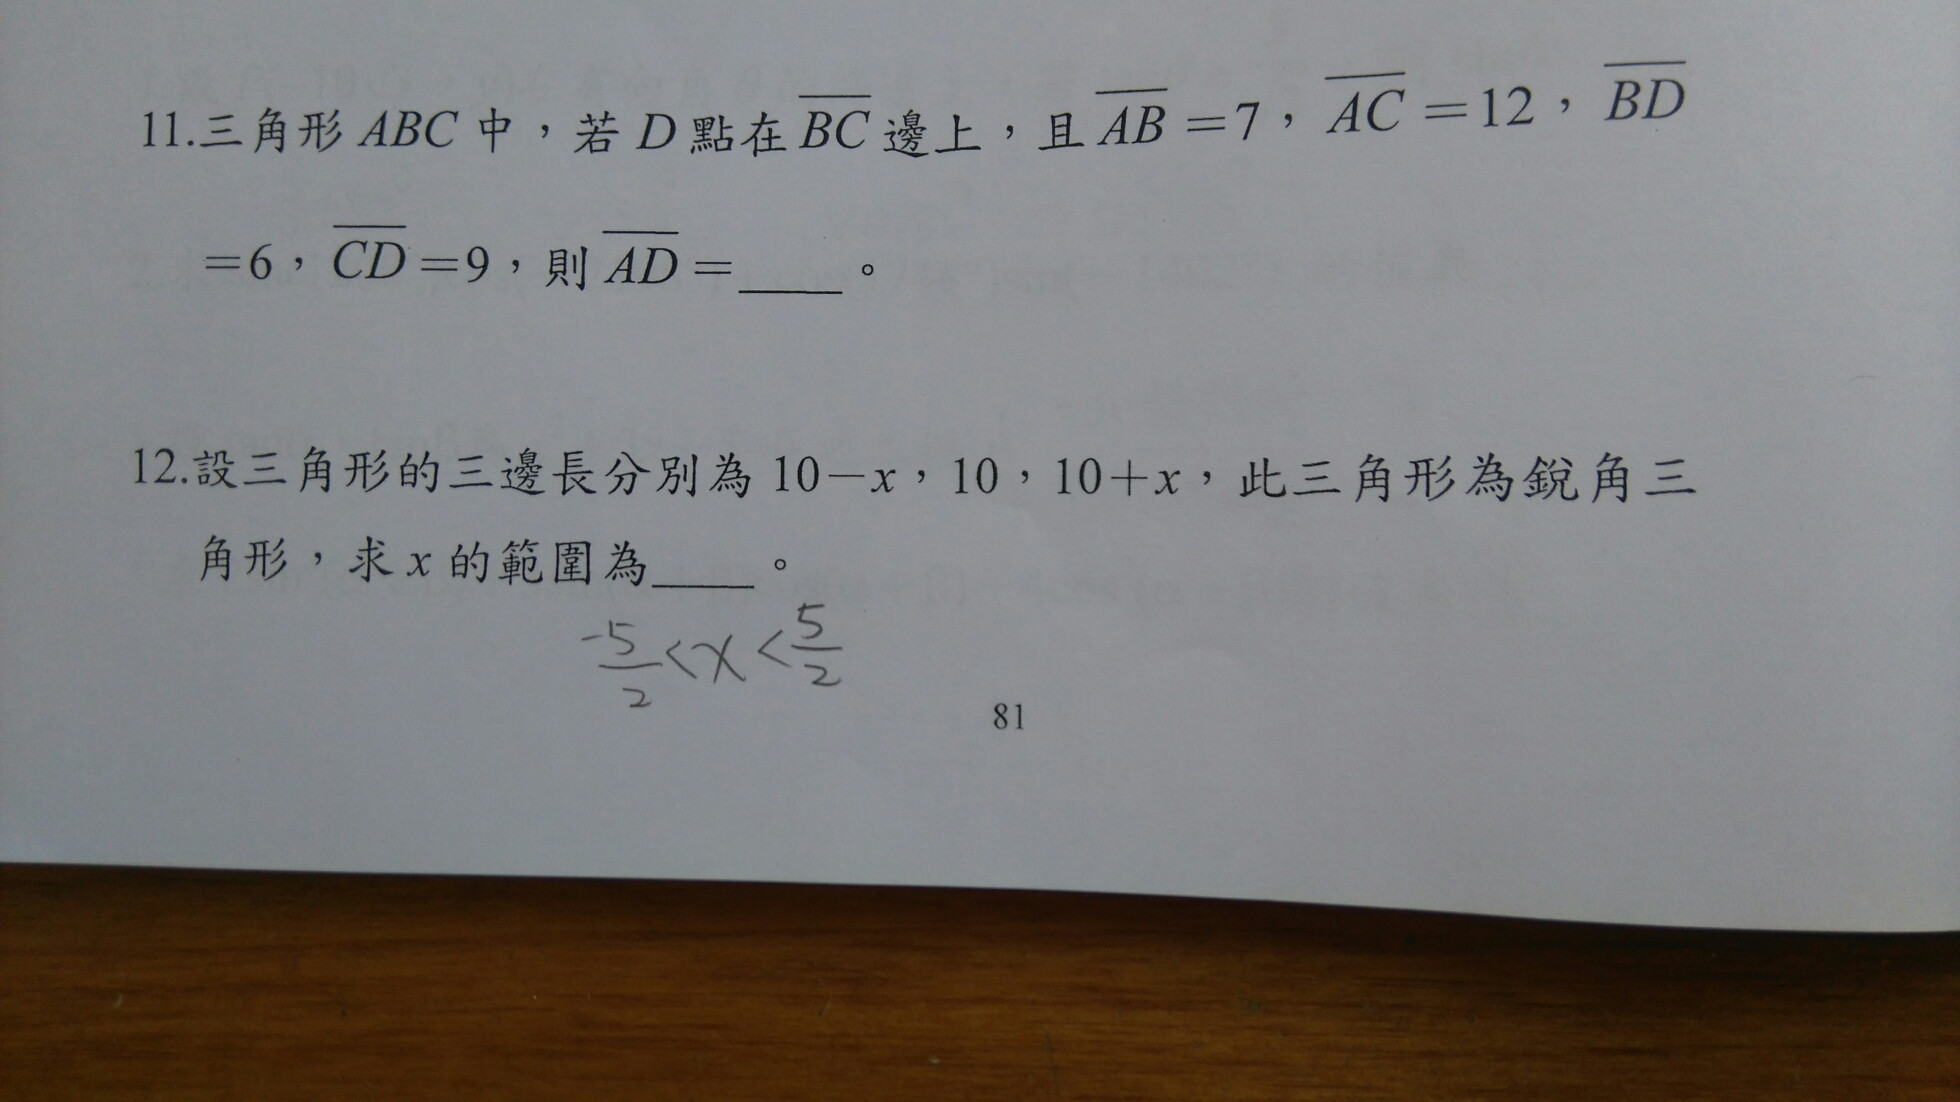 11.三角形 ABC 中，若 D 點在 B̅C̅ 邊上，且 A̅B̅ =7，A̅C̅ =12，B̅D̅
=6，C̅D̅ =9，則 A̅D̅ =____。
12.設三角形的三邊長分別為 10−x，10，10+x，此三角形為銳角三
角形，求 x 的範圍為____。
-5/2 < x < 5/2
81